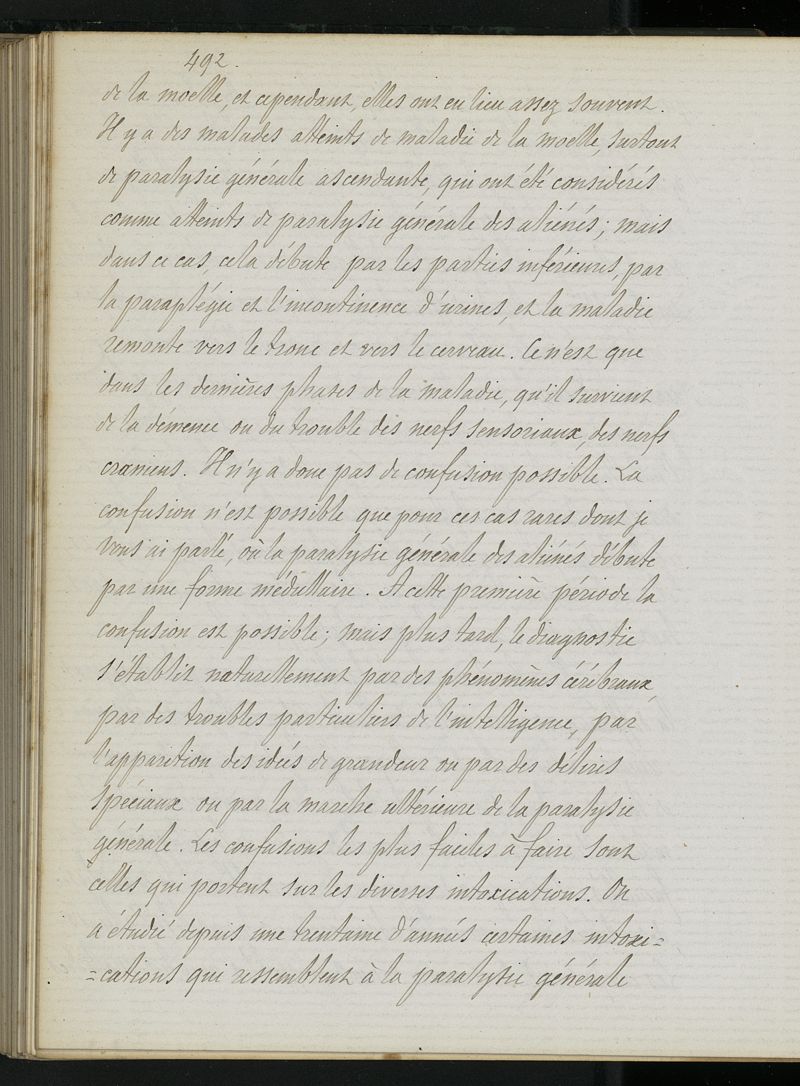 492.
de la moelle, et cependant, elles ont eu lieu assez souvent.
Il y a des malades atteints de maladie de la moelle, surtout
de paralysie générale ascendante, qui ont été considérés
comme atteints de paralysie générale des aliénés; mais
dans ce cas, cela débute par les parties inférieures, par
la paraplégie et l'incontinence d'urines, et la maladie
remonte vers le tronc et vers le cerveau. Ce n'est que
dans les dernières phases de la maladie, qu'il survient
de la démence ou du trouble des nerfs sensoriaux, des nerfs
craniens. Il n'y a donc pas de confusion possible. La
confusion n'est possible que pour ces cas rares dont je
vous ai parlé, où la paralysie générale des aliénés débute
par une forme médullaire. A cette première période la
confusion est possible; mais plus tard, le diagnostic
s'établit naturellement par des phénomènes cérébraux,
par des troubles particuliers de l'intelligence, par
l'apparition des idées de grandeur ou par des délires
spéciaux ou par la marche ultérieure de la paralysie
générale. Les confusions les plus faciles à faire sont
celles qui portent sur les diverses intoxications. On
a étudié depuis une trentaine d'années certaines intoxi=
=cations qui ressemblent à la paralysie générale